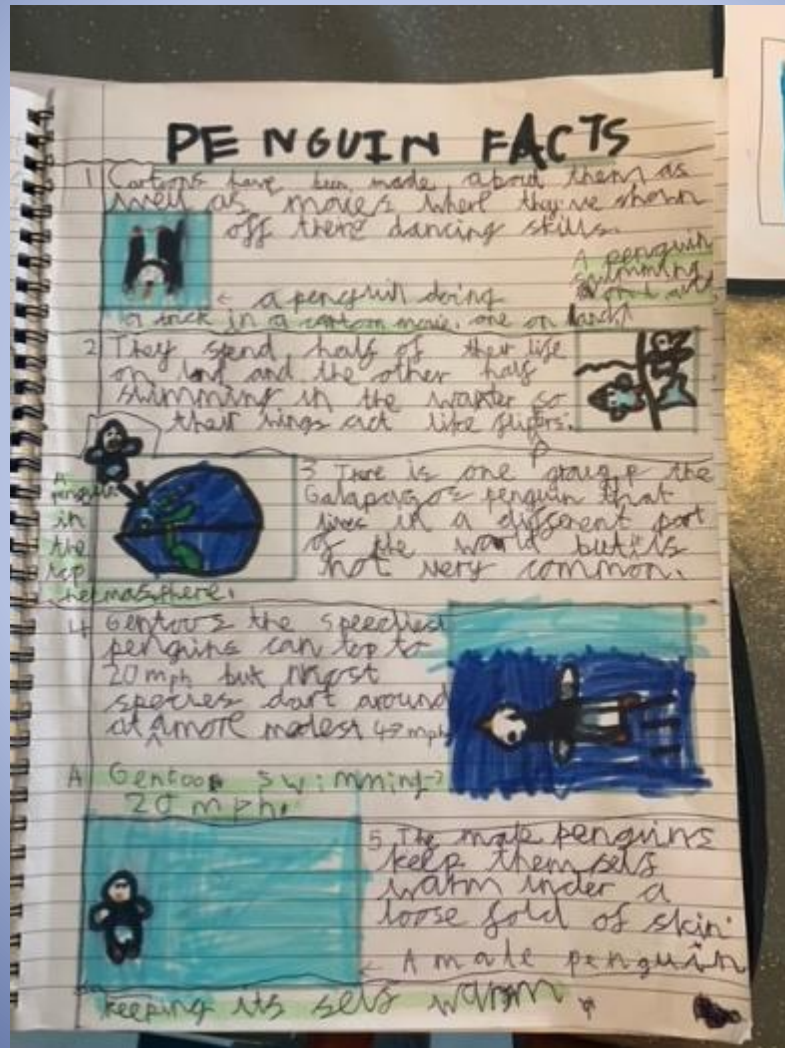 PENGUIN FACTS
1 Cartoons have been made about them as
well as movies where they've shown
off there dancing skills.
← a penguin doing
a trick in a cartoon movie.
A penguin
swimming
and
one on land.
2 They spend half of their life
on land and the other half
swimming in the
so
their wings act like flipers.
3 There is one
the
Galapagos penguin that
lives in a different part
of the world but its
not very common.
A
penguin
in
the
top
4 Gentoo's the speediest
penguins can top to
20 mph but most
species dart around
at a more modest 4-7 mph
A Gentoo swimming→
20 mph.
5 The male penguins
keep them selfs
warm under a
loose fold of skin
← A male penguin
keeping its self warm